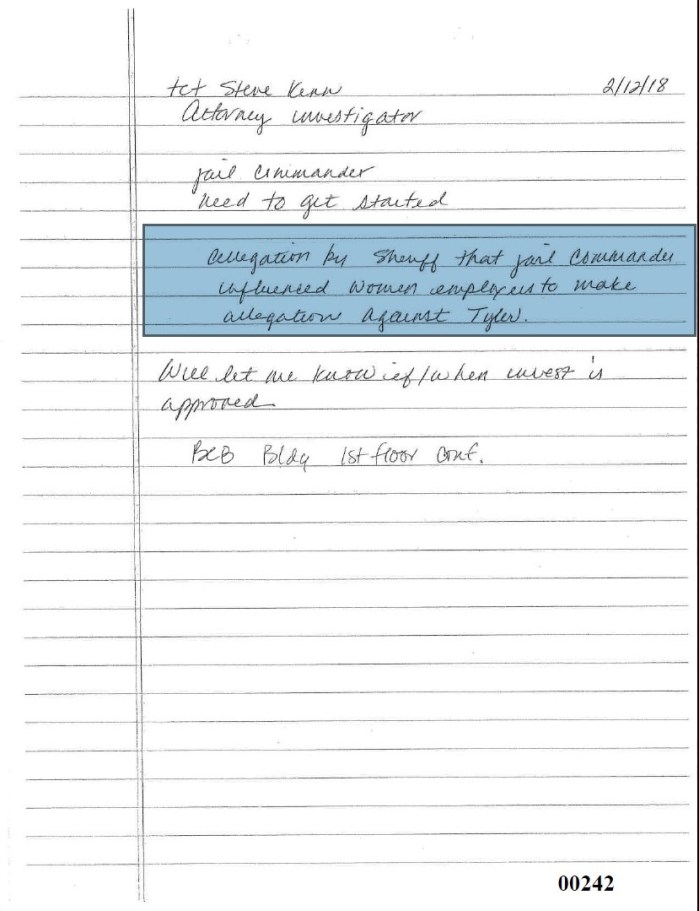 tct Steve Kenn
2/12/18
Attorney investigator
jail commander
need to get started
allegation by Sheriff that jail Commander
influenced women employees to make
allegation against Tyler.
Will let me know if/when invest is
approved
BCB Bldg 1st floor conf.
00242